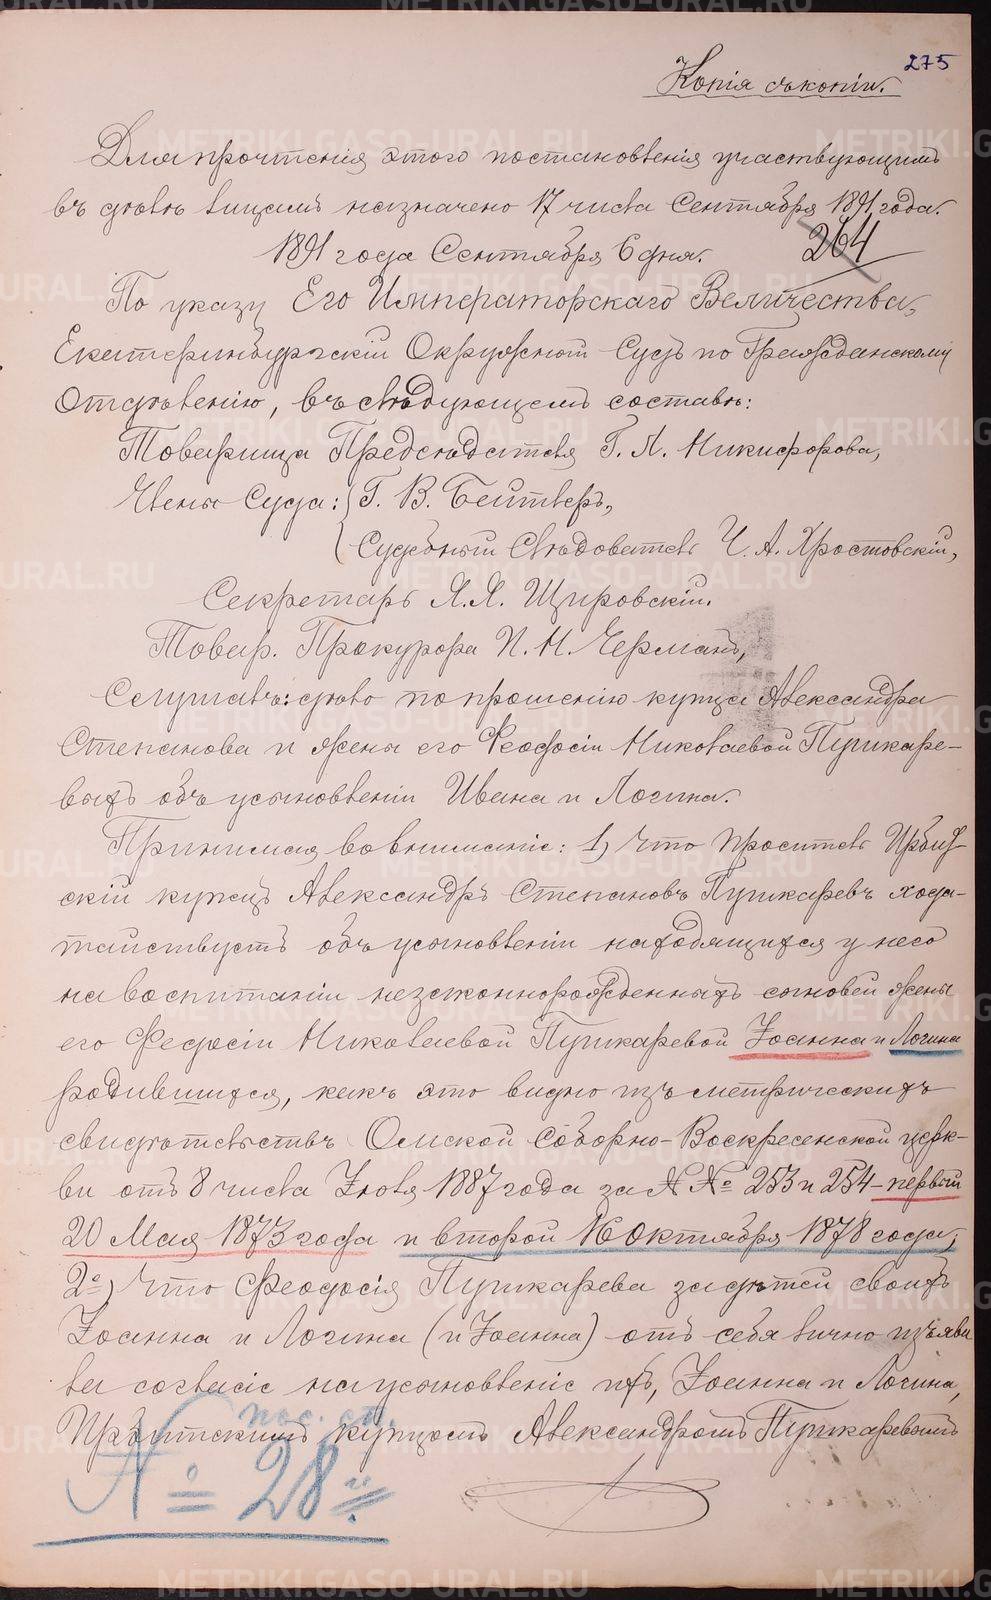 275
Копія съ копіи.
Для прочтенія этого постановленія участвующимъ
въ дѣлѣ лицамъ назначено 17 числа Сентября 1891 года.
264
1891 года Сентября 6 дня.
По указу Его Императорскаго Величества,
Екатеринбургскій Окружной Судъ по Гражданскому
Отдѣленію, въ слѣдующемъ составѣ:
Товарища Предсѣдателя Г. Л. Никифорова,
Члены Суда: Г. В. Бейтлеръ,
Судебный Слѣдователь Ч. А. Хростовскій,
Секретарь Л. Л. Щировскій.
Товар. Прокурора П. Н. Черманъ,
Слушалъ: дѣло по прошенію купца Александра
Степанова и жены его Феодосіи Николаевой Пушкаре-
выхъ объ усыновленіи Ивана и Логина.
Принимая во вниманіе: 1) Что проситель Ирбит-
скій купецъ Александръ Степановъ Пушкаревъ хода-
тайствуетъ объ усыновленіи находящихся у него
на воспитаніи незаконнорожденныхъ сыновей жены
его Феодосіи Николаевой Пушкаревой Іоанна и Логина
родившихся, какъ это видно изъ метрическихъ
свидѣтельствъ Омской Соборно-Воскресенской церк-
ви отъ 8 числа Іюля 1887 года за №№ 253 и 254 - первый
20 Мая 1873 года и второй 16 Октября 1878 года,
2е) Что Феодосія Пушкарева за дѣтей своихъ
Іоанна и Логина (и Іоанна) отъ себя лично изъяви
ла согласіе на усыновленіе ихъ, Іоанна и Логина,
Ирбитскимъ купцомъ Александромъ Пушкаревымъ
пос. ст.
№ 28
METRIKI.GASO-URAL.RU